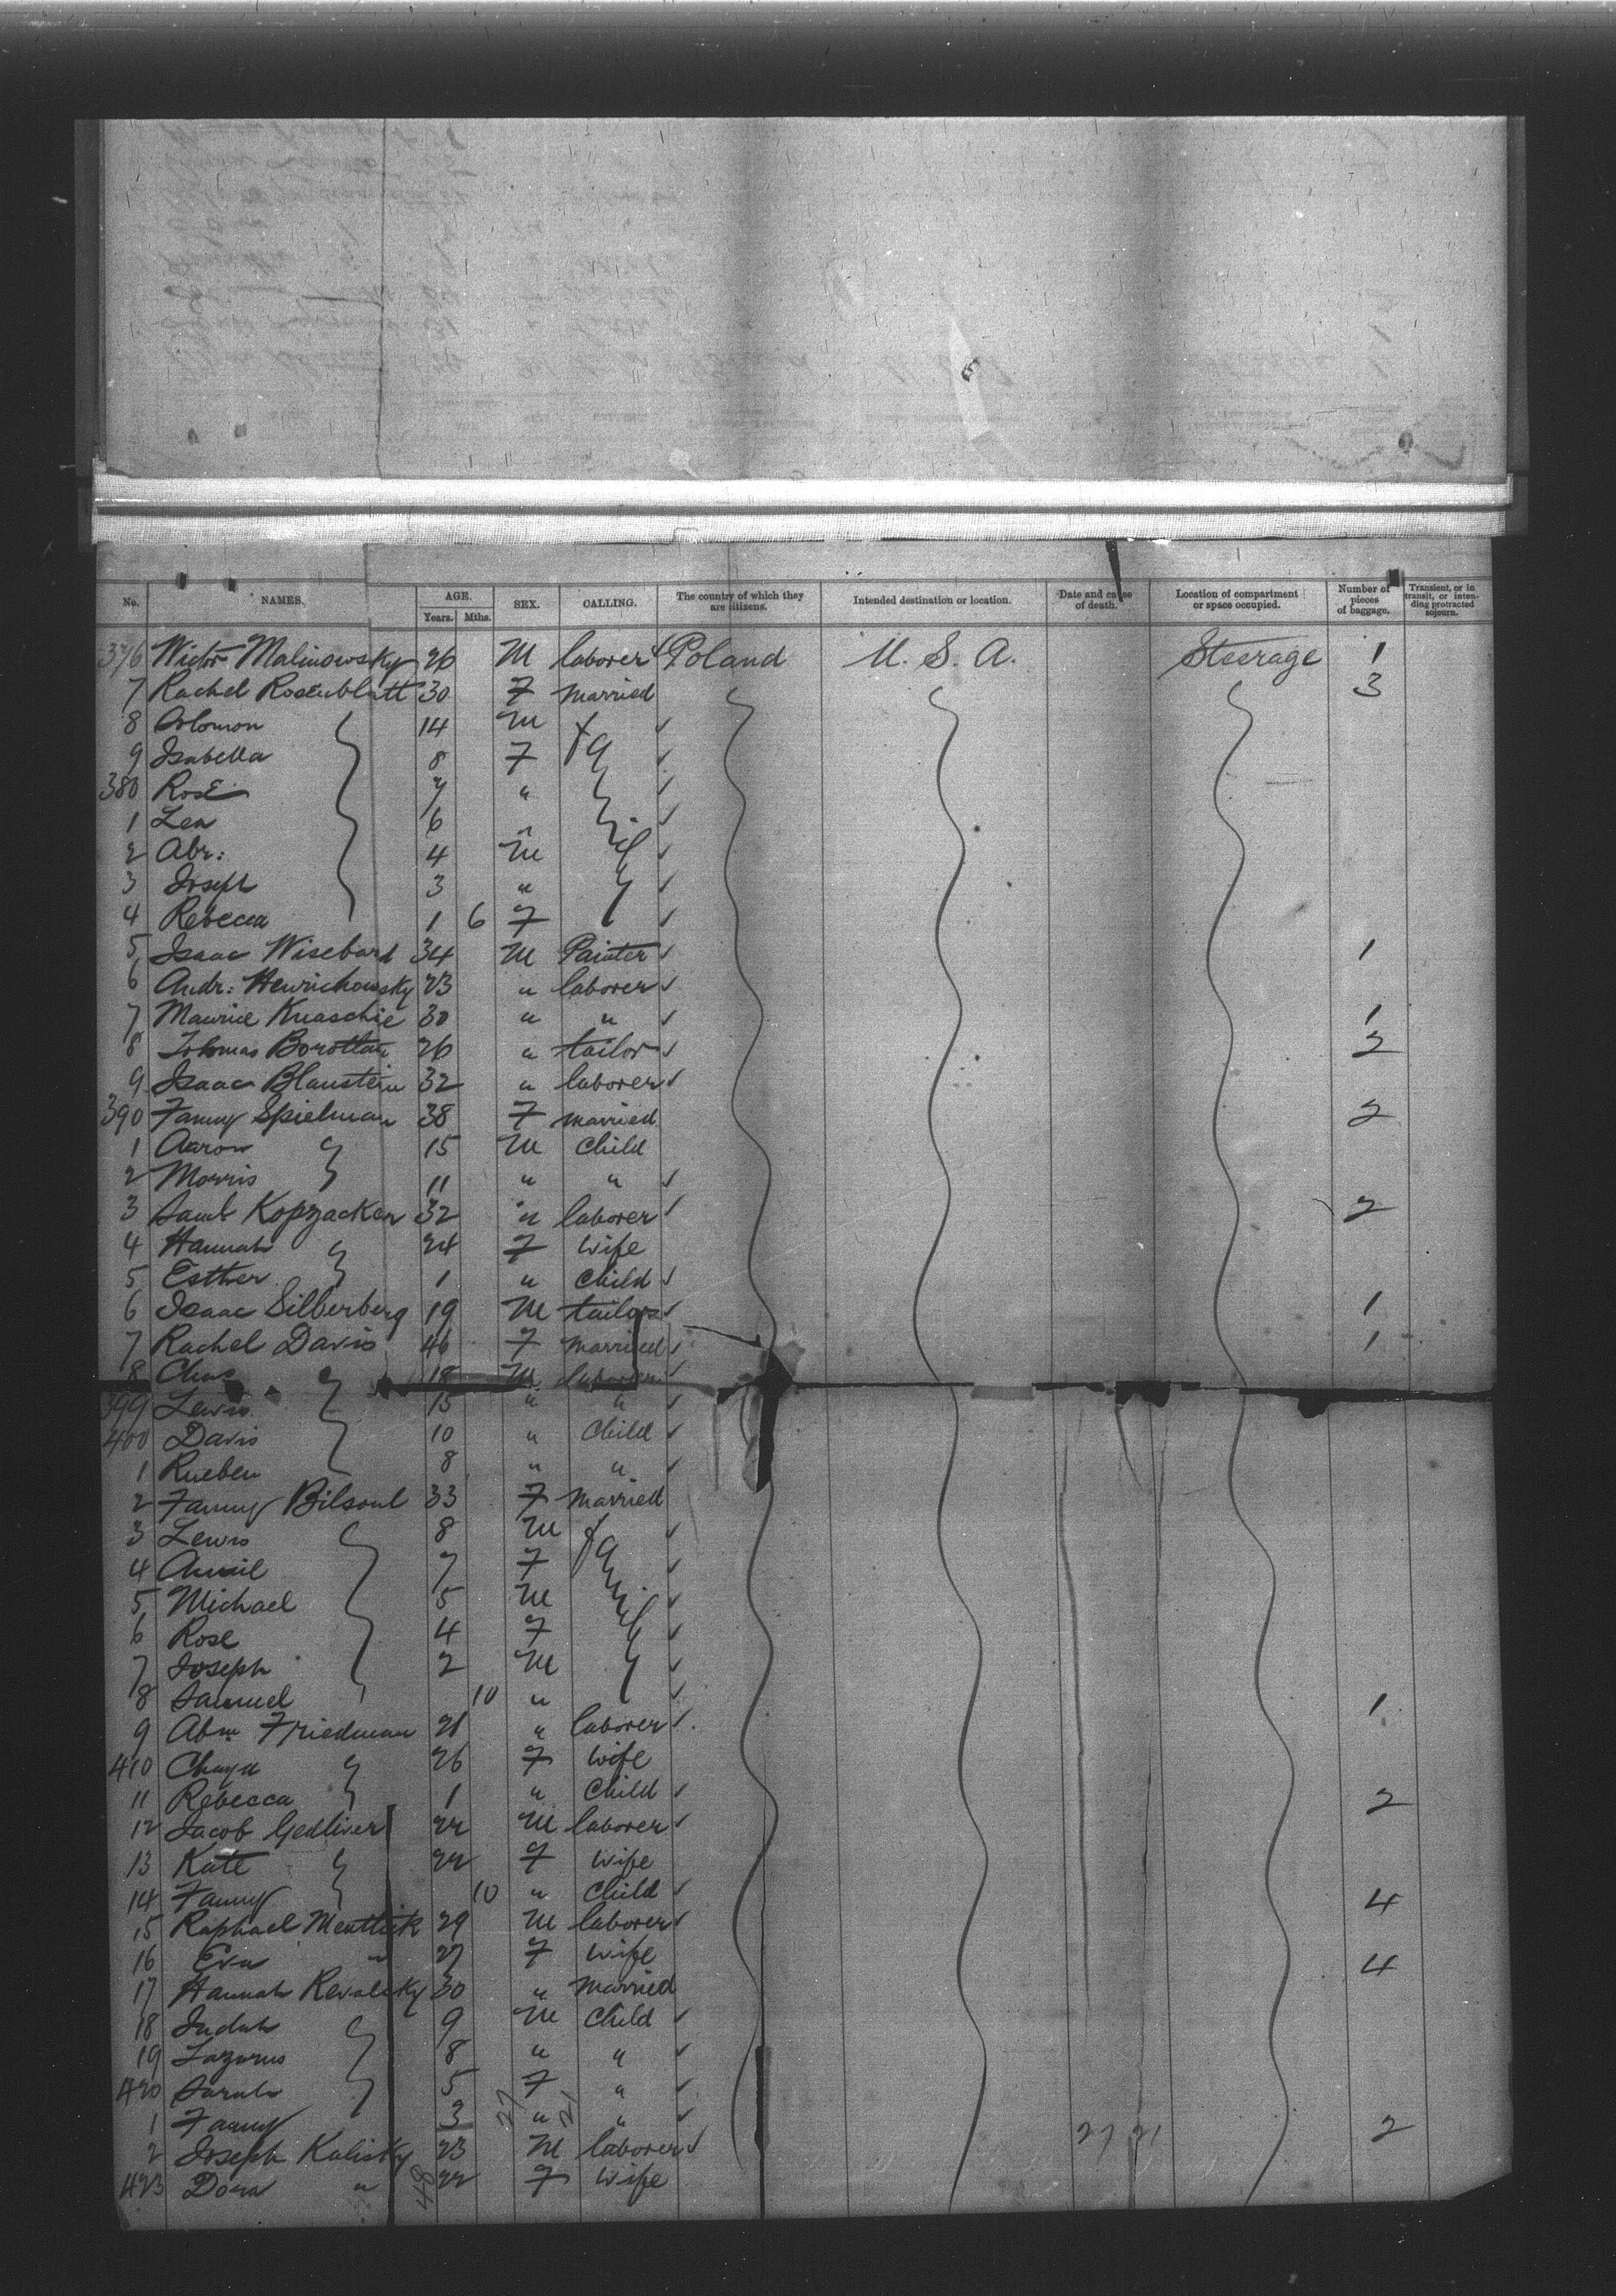 No. NAMES. AGE. Years. Mths. SEX. CALLING. The country of which they are citizens. Intended destination or location. Date and cause of death. Location of compartment or space occupied. Number of pieces of baggage. Transient, or in transit, or intending protracted sojourn.
376 Victor Malinowsky 26 M laborer Poland U. S. A. Steerage 1
7 Rachel Rosenblatt 30 F married 3
8 Solomon 14 M
9 Isabella 8 F
380 Rose 7 "
1 Lea 6 "
2 Abr: 4 M
3 Joseph 3 "
4 Rebecca 1 6 F
5 Isaac Wisebard 34 M Painter 1
6 Andr: Hewrichowsky 23 " laborer
7 Maurice Knaschie 30 " " 1
8 Borottan 26 " tailor 2
9 Isaac Blaustein 32 " laborer
390 Fanny Spielman 38 F married 2
1 Aaron 15 M Child
2 Morris 11 " "
3 Saml Kopzacken 32 " laborer 2
4 Hannah 24 F wife
5 Esther 1 " Child
6 Isaac Silberberg 19 M tailor 1
7 Rachel Davis 46 F married 1
8 Chas 18 M laborer
399 Lewis 15 " "
400 Davis 10 " Child
1 Rueben 8 " "
2 Fanny Bilsoul 33 F married
3 Lewis 8 M
4 7 F
5 Michael 5 M
6 Rose 4 F
7 Joseph 2 M
8 Samuel 10 " 1
9 Abm Friedman 21 " laborer
410 Chaya 26 F wife
11 Rebecca 1 " Child 2
12 Jacob Gedliver 22 M laborer
13 Kate 22 F wife
14 Fanny 10 " Child 4
15 Raphael 29 M laborer
16 Eva " 27 F wife 4
17 Hannah Revalsky 30 " married
18 Judah 9 M Child
19 Lazarus 8 " "
420 Sarah 5 F "
1 Fanny 3 " " 27 21 2
2 Joseph Kalisky 23 M laborer
423 Dora " 22 F wife
48